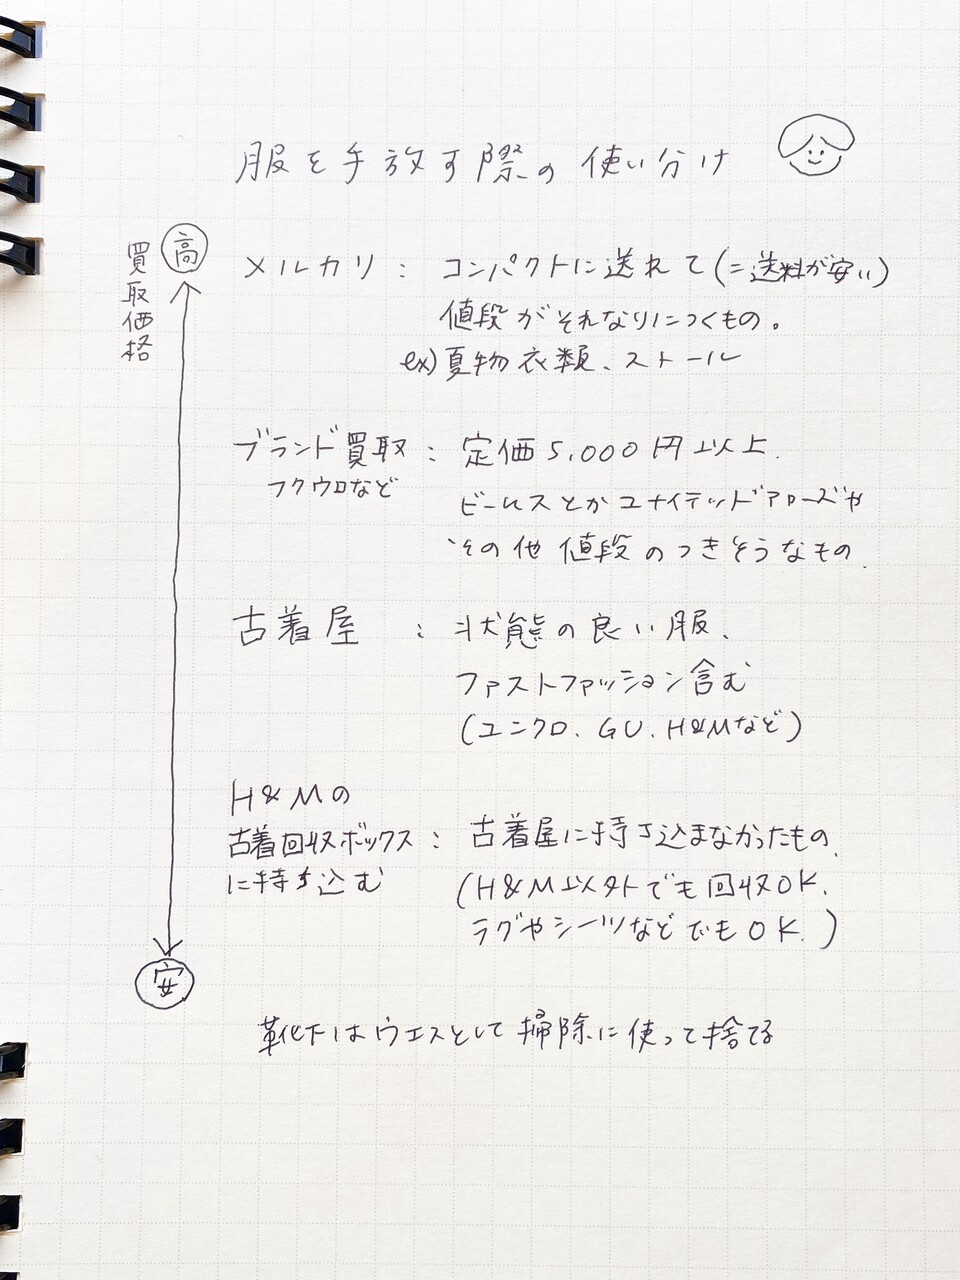 服を手放す際の使い分け
買取価格
高
メルカリ：コンパクトに送れて(=送料が安い)
値段がそれなりにつくもの。
ex)夏物衣類、ストール
ブランド買取：定価5,000円以上.
フクウロなど
ビームスとかユナイテッドアローズや
その他値段のつきそうなもの.
古着屋：状態の良い服、
ファストファッション含む
(ユニクロ、GU、H&Mなど)
H&Mの
古着回収ボックス：古着屋に持ち込まなかったもの.
に持ち込む
(H&M以外でも回収OK.
ラグやシーツなどでもOK.)
安
靴下はウエスとして掃除に使って捨てる